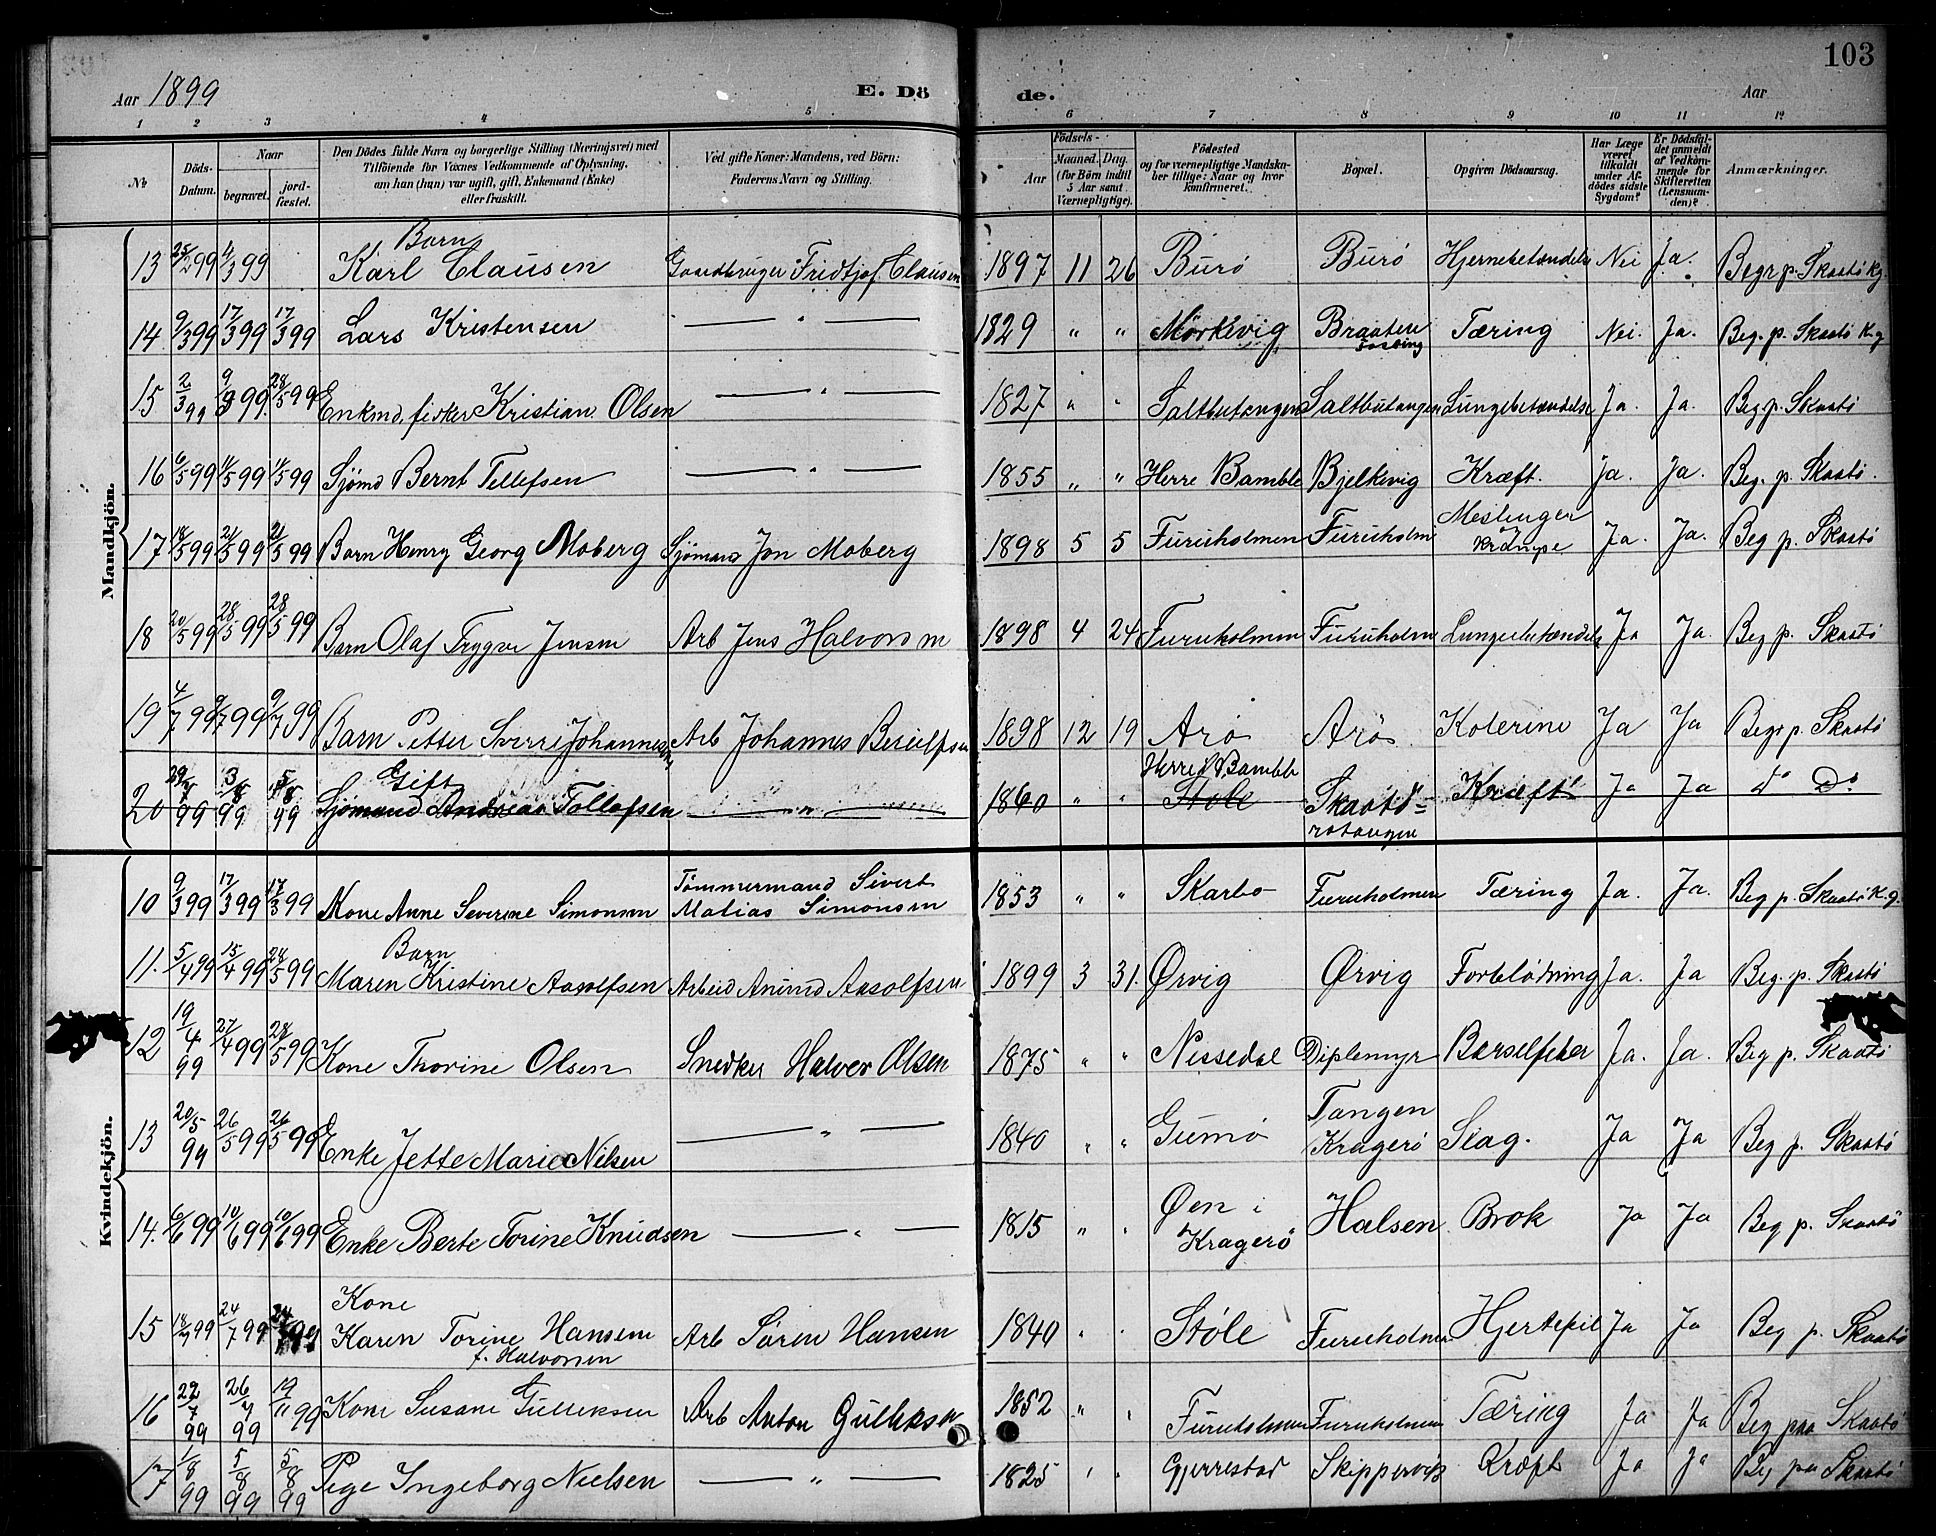 103
Aar 1899 E. Dö de. Aar
1 2 3 4 5 6 7 8 9 10 11 12
Nr. Döds-Datum. Naar begravet. jord-fæstet. Den Dödes fulde Navn og borgerlige Stilling (Næringsvei) med Tilföiende for Voxnes Vedkommende af Oplysning, om han (hun) var ugift, gift, Enkemand (Enke) eller fraskilt. Ved gifte Koner: Mandens, ved Börn: Faderens Navn og Stilling. Födsels- Aar Maaned. Dag. (for Börn indtil 5 Aar samt Værnepligtige). Födested og for værnepligtige Mandskaber tillige: Naar og hvor konfirmeret. Bopæl. Opgiven Dödsaarsag. Har Læge været tilkaldt under Afdödes sidste Sygdom? Er Dödsfaldet anmeldt af Vedkommende for Skifteretten (Lensmanden)? Anmærkninger.
Mandkjön.
Barn
13 25/2 99 11/3 99 Karl Clausen Gaardbruger Fridtjof Clausen 1897 11 26 Burö Burö Hjernebetændelse Nei Ja. Begr p. Skaatö Kg.
14 9/3 99 17/3 99 17/3 99 Lars Kristensen — " — 1829 " " Mörkvig Braaten Tæring Nei. Ja. Beg. p. Skaatö K.g
15 2/3 99 9/3 99. 28/5 99 Enkmd. fisker Kristian Olsen — " — 1827 " " Saltbutangen Saltbutangen Lungebetændelse Ja. Ja. Beg p. Skaatö
16 6/5 99 11/5 99 11/5 99 Sjömd Bernt Tellefsen — " — 1855 " " Herre Bamble Bjelkevig Kræft. Ja. Ja. Beg. p. Skaatö.
17 18/5 99 21/5 99 21/5 99 Barn Henry Georg Moberg Sjömand Jon Moberg 1898 5 5 Furuholmen Furuholm Meslinger Krampe Ja. Ja. Beg p. Skaatö
18 20/5 99 28/5 99 28/5 99 Barn Olaf Trygve Jensen Arb Jens Halvorsen 1898 4 24 Furuholmen Furuholm Lungebetændelse Ja Ja. Beg p. Skaatö
19 4/7 99 9/7 99 9/7 99 Barn Petter Sverre Johannesen Arb Johannes 1898 12 19 Arö Arö Kolerine Ja Ja Begr p. Skaatö
Gift Herre Bamble
20 29/7 99 3/8 99 5/8 99 Sjömand Andreas Tollefsen — " — 1860 " " Stole Skaatö- Kræft Ja Ja do Do
Kvindekjön.
Tömmermand Sivert
10 9/3 99 17/3 99 17/3 99 Kone Anne Severine Simonsen Matias Simonsen 1853 " " Skarbo Furuholmen Tæring Ja. Ja. Beg p. Skaatö K.g.
Barn
11. 5/4 99 15/4 99 28/5 99 Maren Kristine Aasolfsen Arbeid Aasolfsen 1899 3 31. Ørvig Ørvig Forblödning Ja. Ja Beg. p. Skaatö
12 19/4 99 27/4 99 28/5 99 Kone Thorine Olsen Snedker Halvor Olsen 1875 " " Nissedal Diplemyr Barselfeber Ja. Ja. Beg p. Skaatö
13 20/5 99 26/5 99 26/5 99 Enke Jette Marie Nilsen — " — 1840 " " Gumö Tangen Kragerö Slag. Ja Ja Beg p. Skaatö
14. 6/6 99 10/6 99 10/6 99 Enke Berte Torine Knudsen — " — 1815 " " Øen i Kragerö Halsen Brok Ja Ja Beg p. Skaatö
Kone
15 18/7 99 24/7 99 24/7 99 Karen Torine Hansen Arb Sören Hansen 1840 " " Stöle Furuholmen Hjertefeil Ja Ja Beg p. Skaatö
f. Halvorsen
16 22/7 99 26/7 99 19/11 99 Kone Susane Gulliksen Arb Anton Gulliksen 1852 " " Furuholmen Furuholmen Tæring Ja Ja Beg paa Skaatö
17 1/8 99 5/8 99 5/8 99 Pige Ingeborg Nielsen — " — 1825 " " Gjerrestad Kræft Ja Ja Beg paa Skaatö